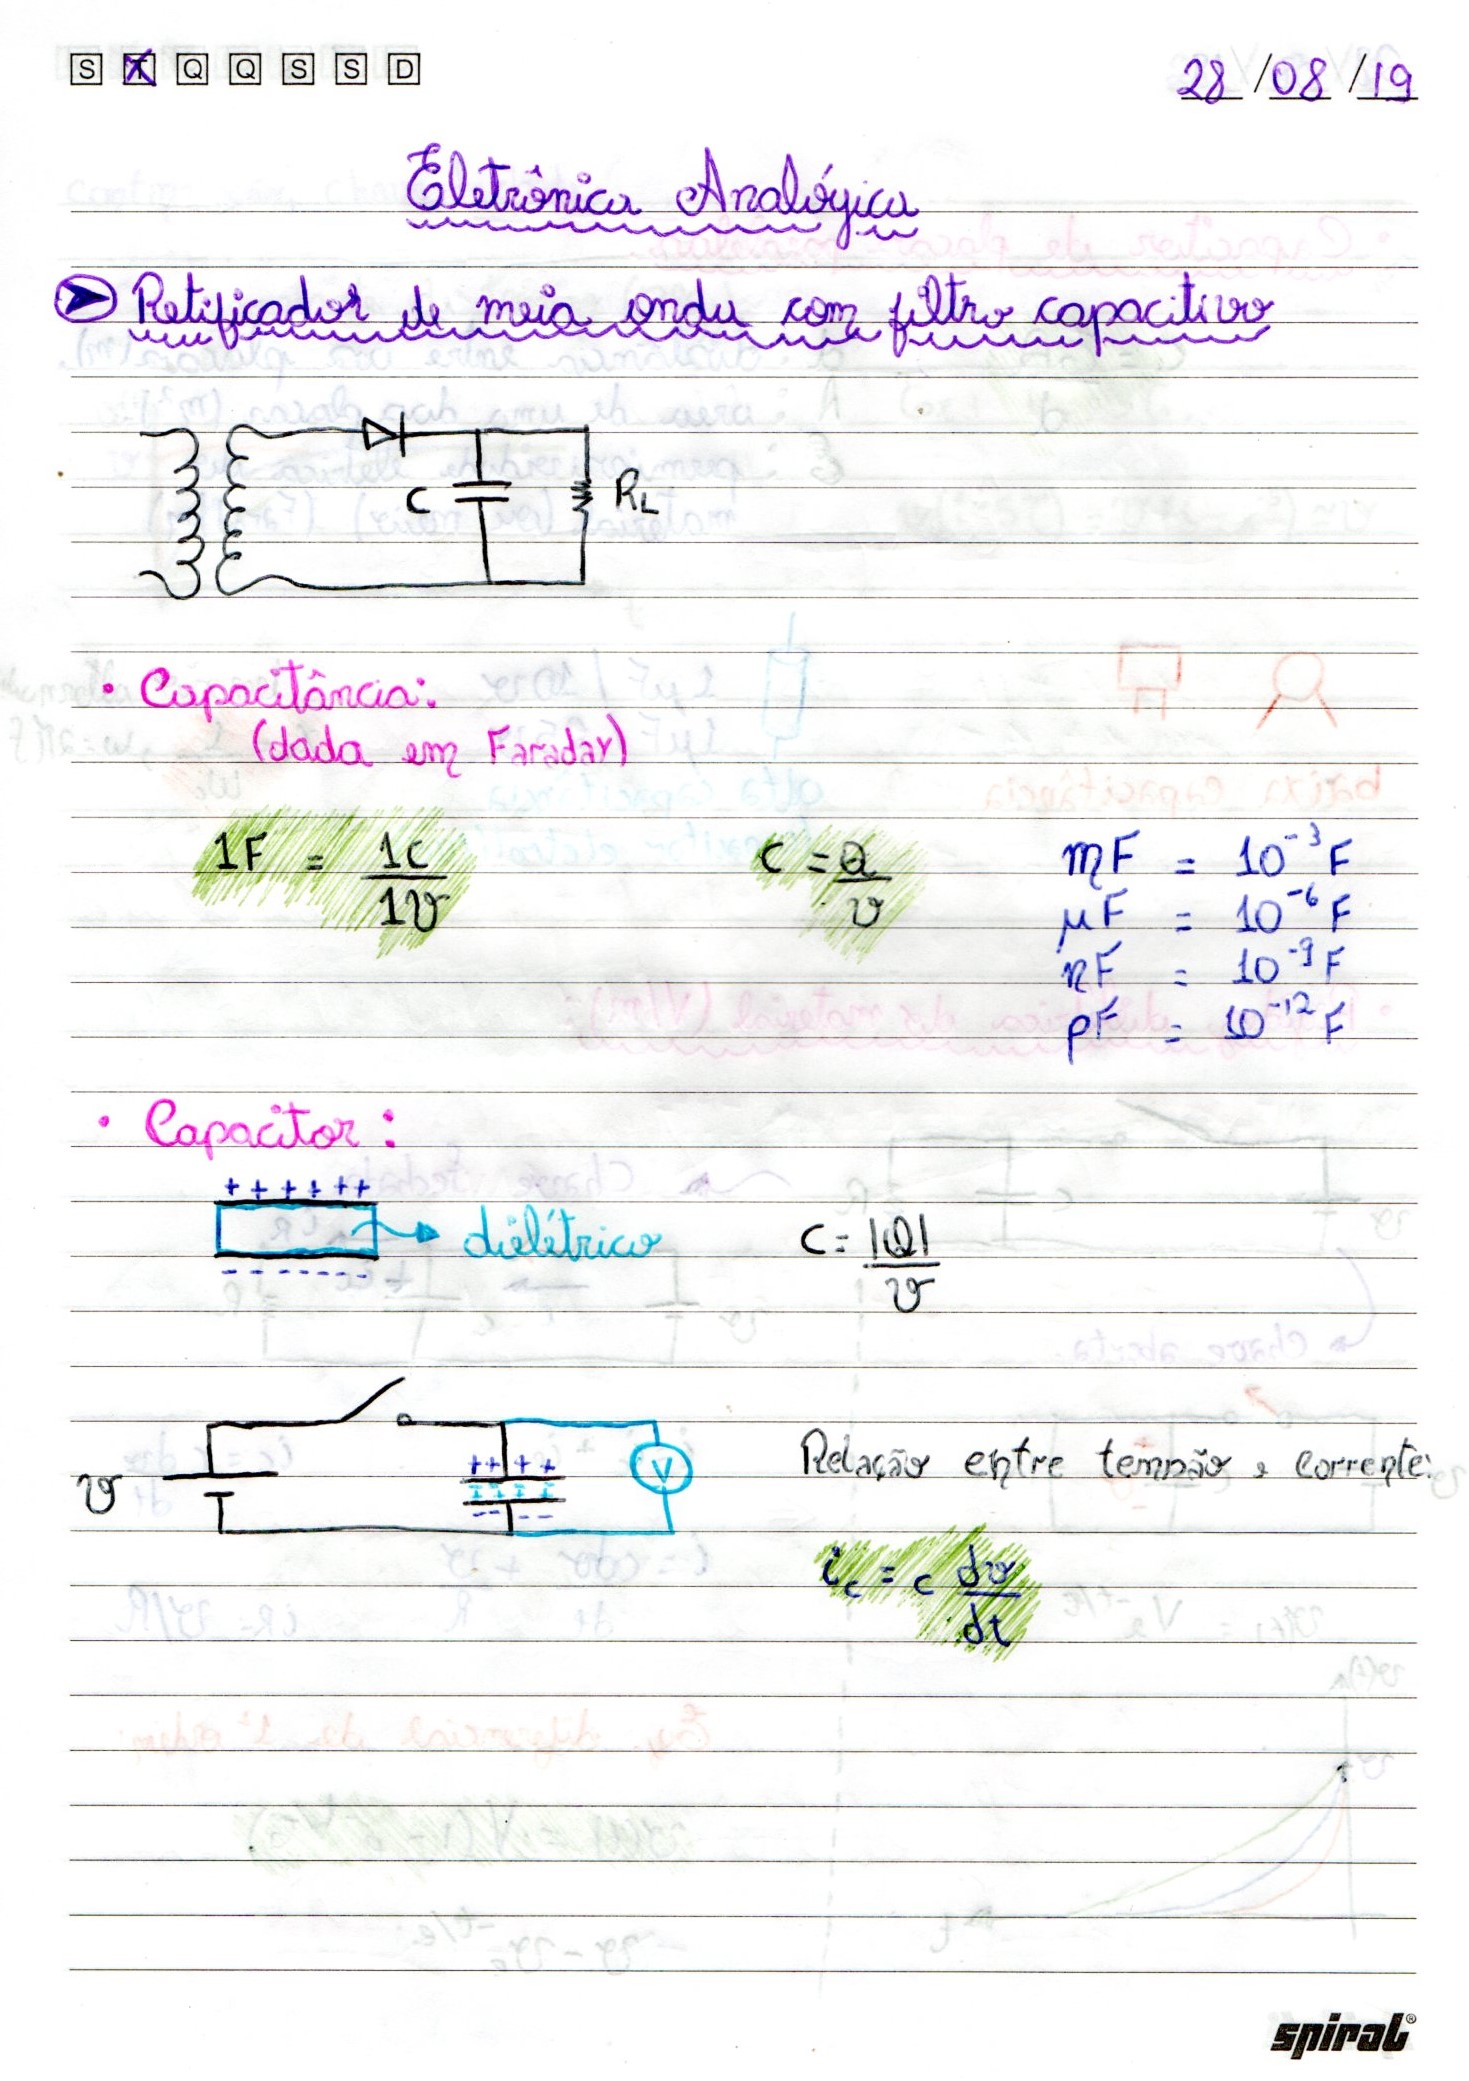 S T Q Q S S D
28/08/19
Eletrônica Analógica
Retificador de meia onda com filtro capacitivo
C
RL
• Capacitância:
(dada em Faraday)
1F = 1C/1V
C = Q/V
mF = 10⁻³F
μF = 10⁻⁶F
nF = 10⁻⁹F
pF = 10⁻¹²F
• Capacitor:
+ + + + + +
dielétrico
- - - - - - -
C = |Q|/V
V
+ + + +
V
Relação entre tempão e corrente:
ic = c dv/dt
spiral®